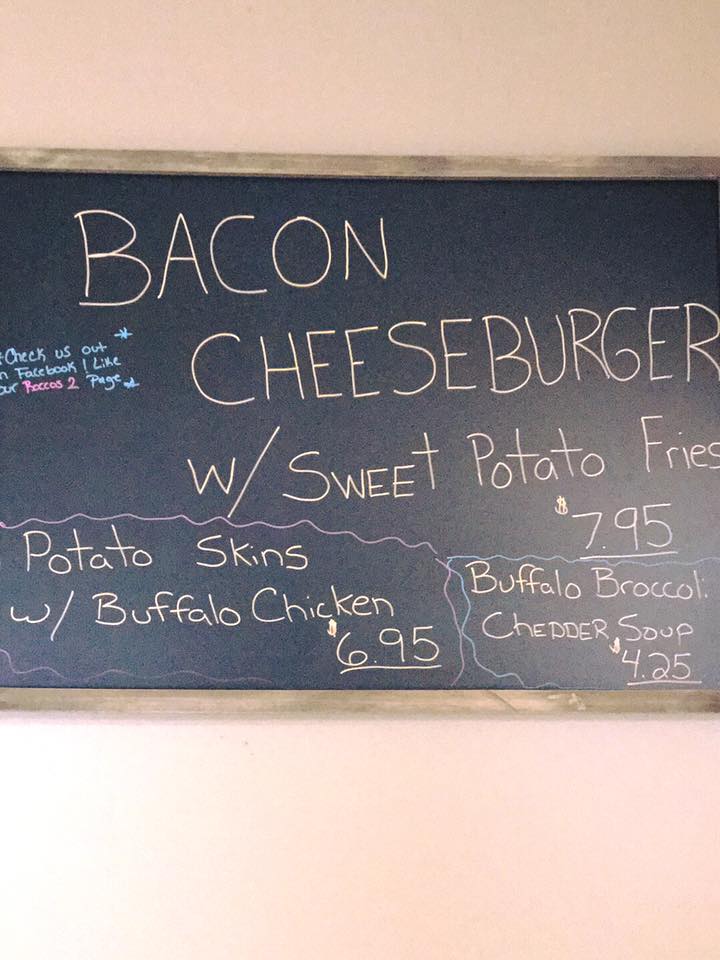 BACON
CHEESEBURGER
*Check us out *
n Facebook! Like
our Roccos 2 Page *
w/ SWEEt Potato Fries
$7.95
Potato Skins
w/ Buffalo Chicken
$6.95
Buffalo Broccoli
CHEDDER Soup
$4.25